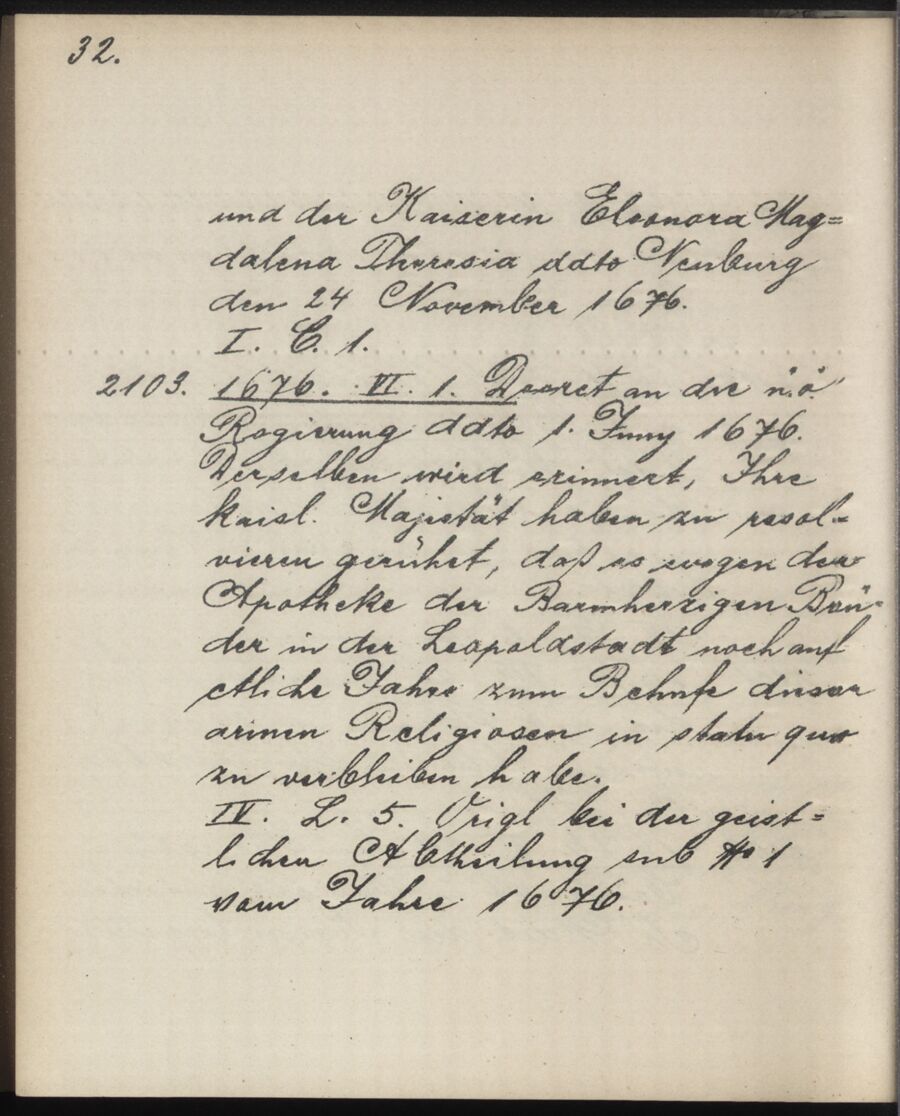 32.
und der Kaiserin Eleonora Mag=
dalena Theresia ddto Neuburg
den 24 November 1676.
I. C. 1.
2103. 1676. VI. 1. Decret an die n.ö.
Regierung ddto 1. Juny 1676.
Derselben wird erinnert, Ihre
kaisl. Majestät haben zu resol=
vieren gerühet, daß es wegen der
Apotheke der Barmherzigen Brü=
der in der Leopoldstadt noch auf
etliche Jahre zum Behufe dieser
armen Religiosen in statu quo
zu verbleiben habe.
IV. L. 5. Origl bei der geist=
lichen Abtheilung sub No 1
vom Jahre 1676.